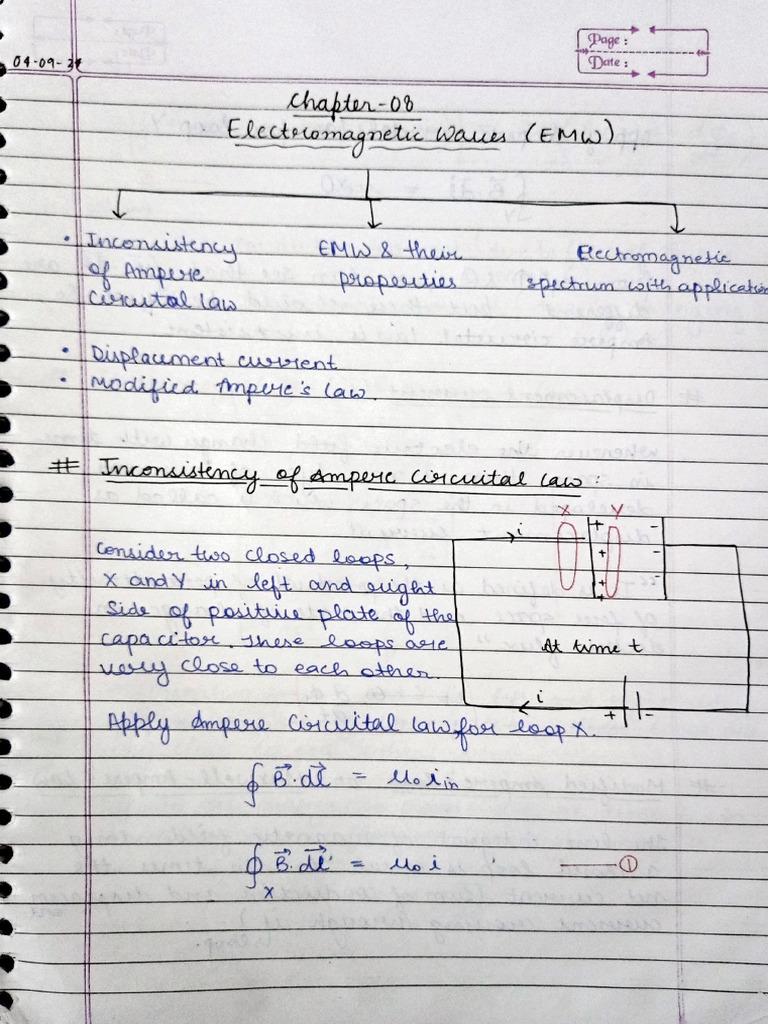 Page :
Date :
04-09-24
Chapter-08
Electromagnetic Waves (EMW)
• Inconsistency of Ampere circuital law
EMW & their properties
Electromagnetic spectrum with application
• Displacement current
• Modified Ampere's Law.
# Inconsistency of Ampere Circuital Law :
Consider two closed loops,
X and Y in left and right
side of positive plate of the
capacitor. These loops are
very close to each other.
X Y
i
+ -
+ -
+
+
At time t
i
+ -
Apply Ampere Circuital law, for loop X.
∮ B⃗. dl⃗ = μ₀ iᵢₙ
∮ₓ B⃗. dl⃗ = μ₀ i ——— ①